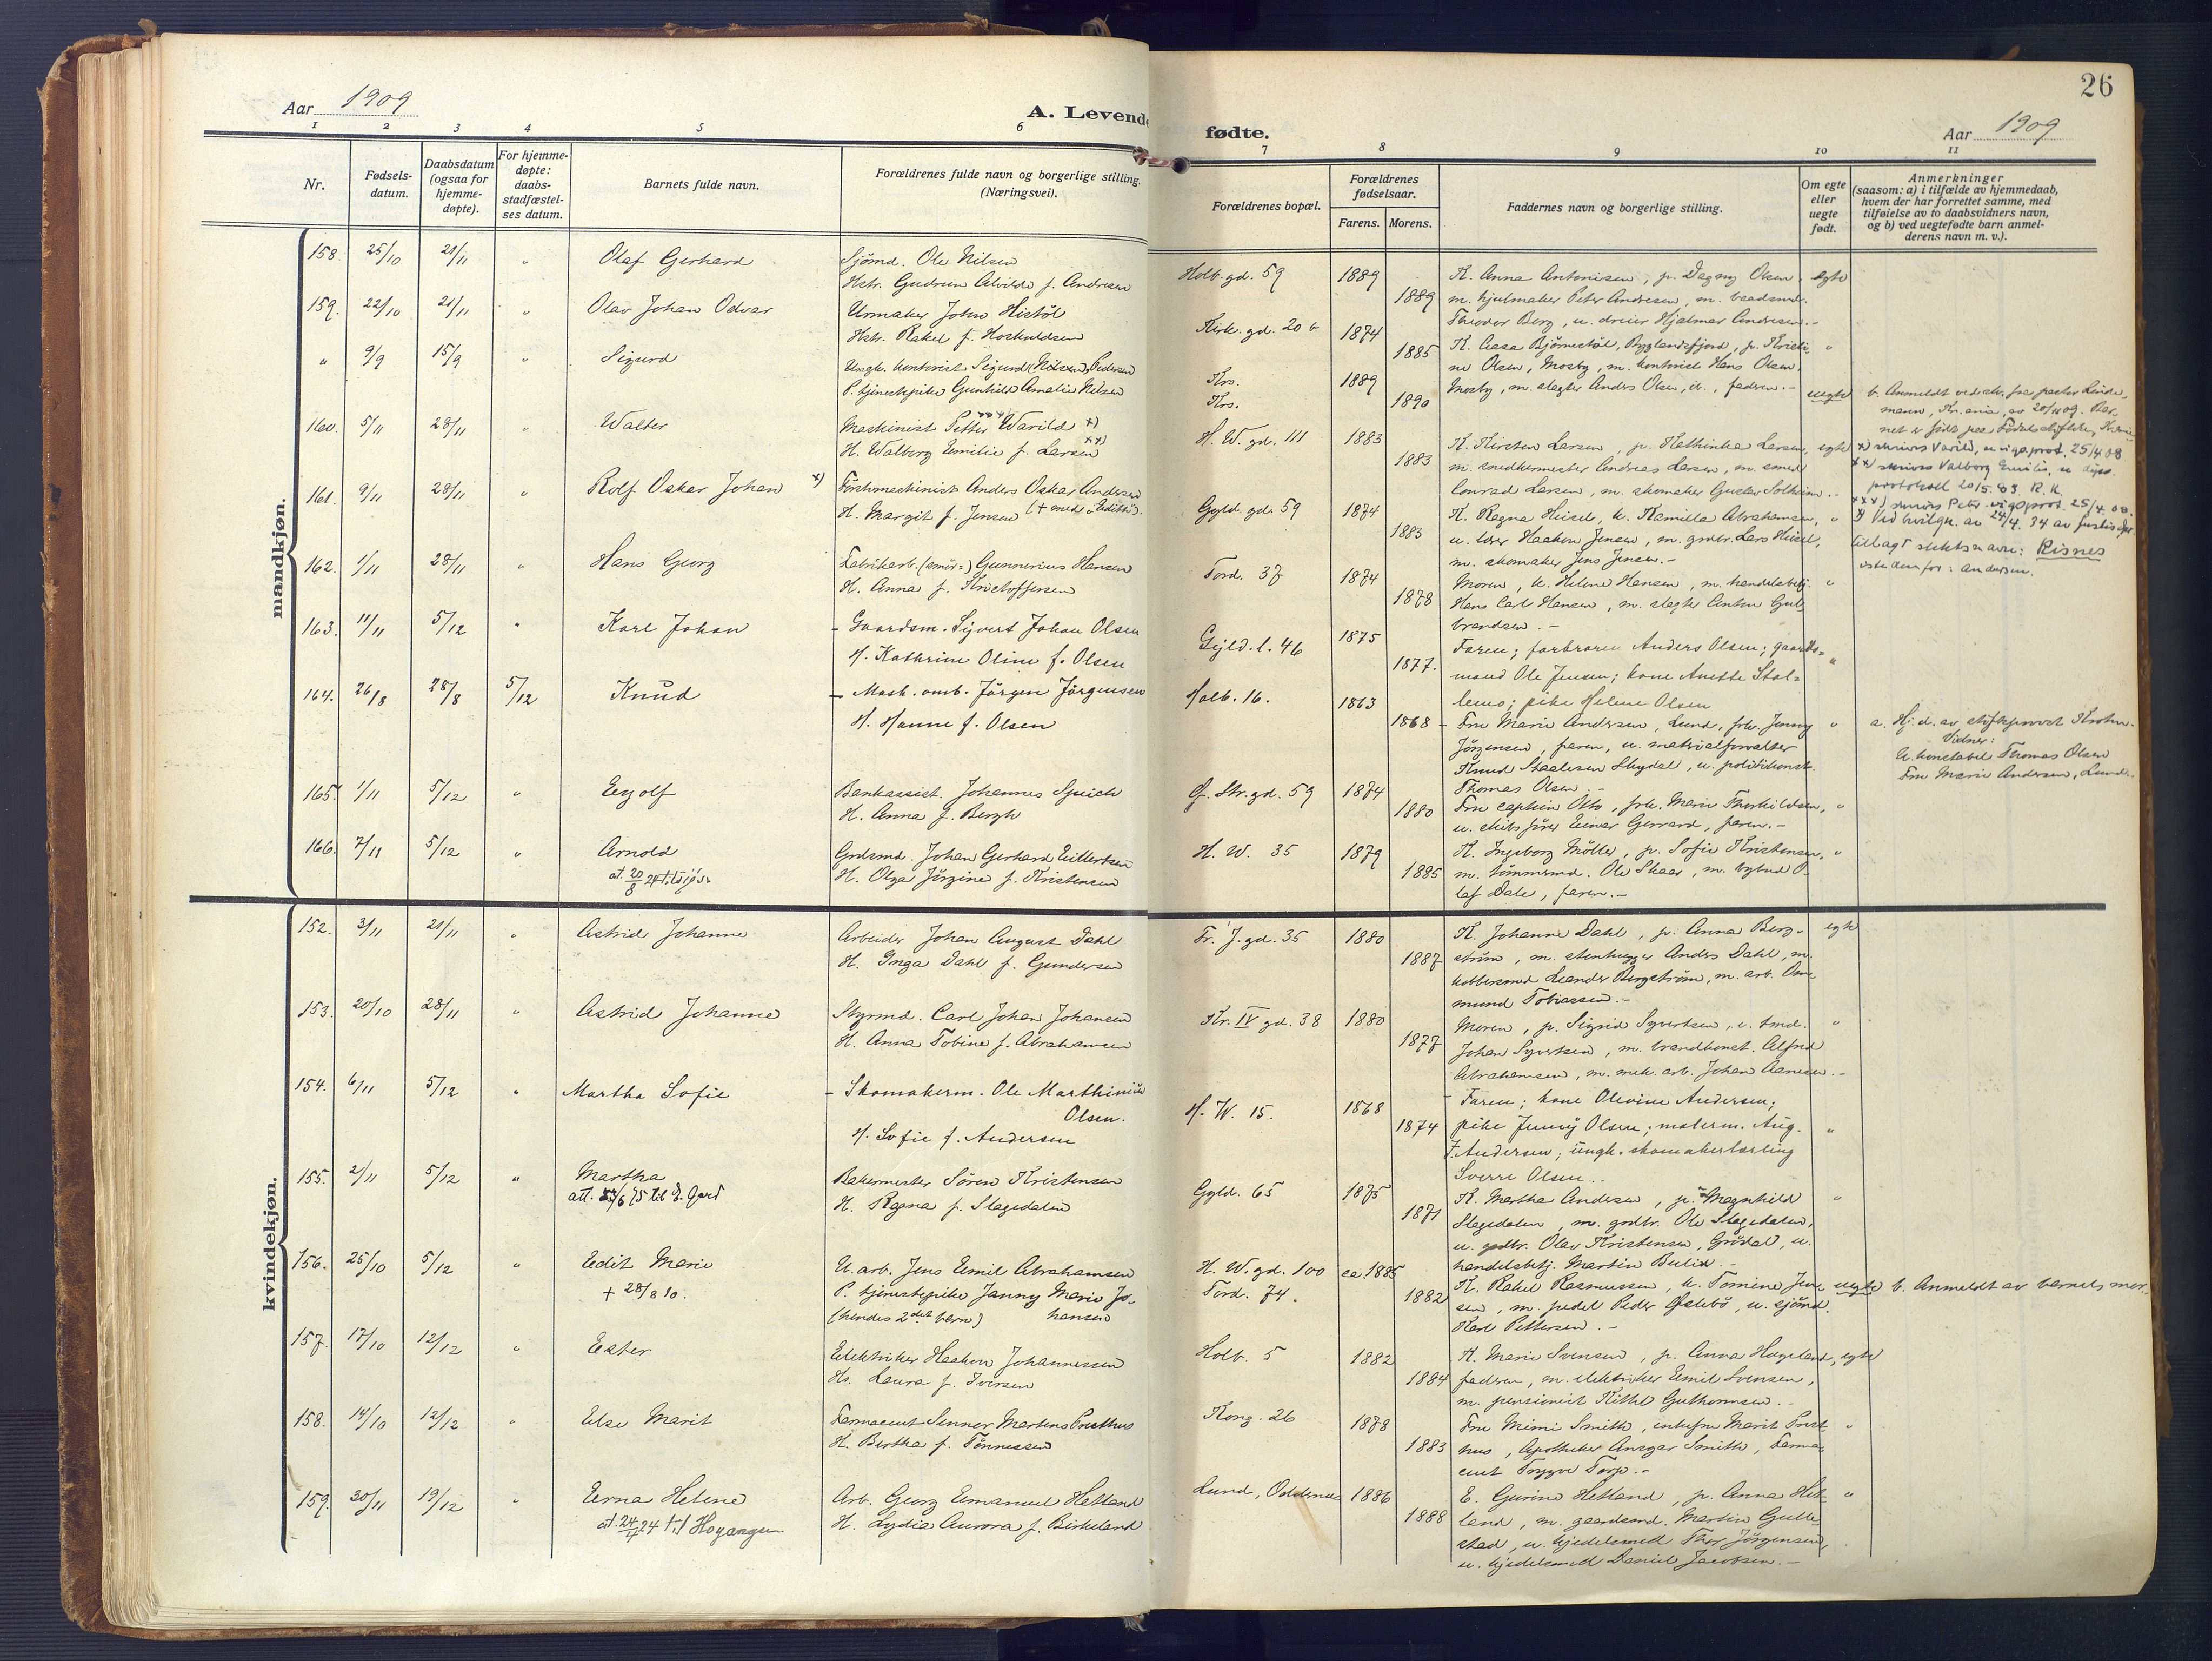 Aar 1909
A. Levende
1 2 3 4 5 6
Nr.
Fødsels-
datum.
Daabsdatum
(ogsaa for
hjemme-
døpte).
For hjemme-
døpte:
daabs-
stadfæstel-
ses datum.
Barnets fulde navn.
Forældrenes fulde navn og borgerlige stilling.
(Næringsvei).
mandkjøn.
158. 25/10 21/11 " Olaf Gerhard Sjømd. Ole Nilsen
Hstr. Gudrun Alvilde f. Andresen
159. 22/10 21/11 " Olav Johan Odvar Urmaker John Histøl
Hstr. Rakel f. Hoskuldsen
" 9/9 15/9 " Sigurd Ungk. kontorist Sigurd (Nilsen) Pedersen
P. tjenestepike Gunhild Amalie Nilsen
160. 5/11 28/11 " Walter Maskinist Petter xxx) Warild x)
H. Walborg Emilie f. Larsen xx)
161. 9/11 28/11 " Rolf Oskar Johan x) Førstemaskinist Anders Oskar Andersen
H. Margit f. Jensen
162. 1/11 28/11 " Hans Georg Fabrikarb. (smør-) Gunnerius Hansen
H. Anna f. Kristoffersen
163. 11/11 5/12 " Karl Johan - Gaardsm. Sijvert Johan Olsen
H. Kathrine Oline f. Olsen
164. 26/8 28/8 5/12 Knud - Mask. arb. Jörgen Jörgensen
H. Hanne f. Olsen
165. 1/11 5/12 " Eyolf Bankassist. Johannes
H. Anna f. Bergh
166. 7/11 5/12 " Arnold Grdsmd. Johan Gerhard Eilertsen
at. 20/8 24 H. Olga Jørgine f. Kristensen
kvindekjøn.
152. 3/11 21/11 " Astrid Johanne Arbeider Johan August Dahl
H. Inga Dahl f. Gundersen
153. 20/10 28/11 " Astrid Johanne Styrmd. Carl Johan Johansen
H. Anna Tobine f. Abrahamsen
154. 6/11 5/12 " Martha Sofie - Skomakerm. Ole Marthinius
Olsen.
H. Sofie f. Andersen
155. 2/11 5/12 " Martha Bakermester Søren Kristensen
H. Ragna f. Slagedalen
156. 25/10 5/12 " Edit Marie U. arb. Jens Emil Abrahamsen
+ 28/8 10. P. tjenestepike Janny Marie Jo-
(hendes 2det barn) hansen
157. 17/10 12/12 " Ester Elektriker Haakon Johannessen
H. Laura f. Iversen
158. 14/10 12/12 " Else Marit Farmaceut Sennor Martens Presthus
H. Bertha f. Tønnessen
159. 30/11 19/12 " Erna Helene Arb. Georg Emanuel Hetland
at. 24/4 24 til Høyanger H. Lydia Aurora f. Birkeland
26
fødte.
Aar 1909
7 8 9 10 11
Forældrenes bopæl.
Forældrenes
fødselsaar.
Farens. Morens.
Faddernes navn og borgerlige stilling.
Om egte
eller
uegte
født.
Anmerkninger
(saasom: a) i tilfælde av hjemmedaab,
hvem der har forrettet samme, med
tilføielse av to daabsvidners navn,
og b) ved uegtefødte barn anmel-
derens navn m. v.).
Holb. gd. 59 1889 K. Anna Antonisen, p. Dagny Olsen, egte
1889 m. hjulmaker Peter Andresen, m. baadsmd.
Theodor Berg, u. dreier Hjalmar Andresen.-
Kirk. gd. 20 b 1874 K. Aasa Bjørnestøl, Byglandsfjord, p. Kristi- "
1885 ne Olsen, Mosby, m. kontorist Hans Olsen,
Mosby, m. slagter Anders Olsen, ib., faderen.-
Krs. 1889
Krs. 1890 uegte b. Anmeldt ved skr. fra pastor Linde-
mann, Kr.ania, av 20/11 09. Bar-
net er født paa Fødselsstiftelsen, Kr.ania
H. W. gd. 111 1883 K. Kirsten Larsen, p. Kathinka Larsen, egte x) skrives Varild, 25/4 08
1883 m. snedkermester Andreas Larsen, m. smed xx) skrives Valborg Emilie,
Conrad Larsen, m. skomaker Gustav Solheim.- protokoll 20/5. 83 R.K.
xxx) skrives Peter. 25/4. 08.
Gyld. gd. 59 1874 K. Ragna Heisel, k. Kamilla Abrahamsen, " x) Ved bevilgn. av 24/4. 34 av
1883 u. lærer Haakon Jensen, m. grdbr. Lars Heisel, tillagt slektsnavn: Risnes
m. skomaker Jens Jensen.- istedenfor: Andersen.
Tord. 37 1874 Moren, k. Helene Hansen, m. handelsbetj. "
1878 Hans Carl Hansen, m. slagter Anton Gul-
brandsen.-
Gyld. l. 46 1875 Faren; farbroren Anders Olsen; gaards-
1877. mand Ole Jensen; kone Anette Stal- "
lemo; pike Helene Olsen
Holb. 16. 1863
1868 - Fru Marie Andersen, Lund, frk. Jenny " a. Hj. d. av stiftsprovst Krohn.
Jørgensen, faren, u. materialforvalter Vidner:
Knud Staalesen Skydal, u. politikonst. U. konstabel Thomas Olsen
Thomas Olsen.- Fru Marie Andersen, Lund.-
Ø. Str. gd. 59 1874
1880 Fru captein Otto, frk. Marie Thorkildsen, "
u. skibsfører Einar Gerrard, faren.-
H. W. 35 1879 K. Ingeborg Møller, p. Sofie Kristensen, "
1885 m. tømmermd. Ole Skaar, m. bybud O-
laf Dale, faren.-
Fr. J. gd. 35 1880 K. Johanne Dahl, p. Anna Berg- egte
1887 strøm, m. stenhugger Anders Dahl, m.
kobbersmed Leander Bergstrøm, m. arb. Om-
mund Tobiassen.-
Kr. IV gd. 38 1880 Moren, p. Sigrid Syvertsen, u. tmd. "
1877 Johan Syvertsen, m. brandkonst. Alfred
Abrahamsen, m. mek. arb. Johan Aanesen.-
H. W. 15. 1868 - Faren; kone Olevine Andersen;
1874 pike Jenny Olsen; malerm. Aug. "
Andersen; ungk. skomakerlærling
Sverre Olsen..
Gyld. 65 1875 K. Martha Andersen, p. Magnhild "
1871 Slagedalen, m. grdbr. Ole Slagedalen,
u. grdbr. Olav Kristensen, Grødal, u.
handelsbetj. Martin
H. W. gd. 100 ca 1885 K. Rakel Rasmussen, k. Tomine Jen- uegte b. Anmeldt av barnets mor.
Tord. 74. 1882 sen, m. pedel Peder Øslebø, u. sjømd.
Karl Pettersen.-
Holb. 5 1882 K. Marie Svensen, p. Anna Hageland, egte
1884 faderen, m. elektriker Emil Svensen,
m. pensionist Kittel Guthormsen.-
Kong. 26 1878 Fru Mimi Smith, enkefru Marit Prest- "
1883 hus, Apotheker Ansgar Smith, Farma-
ceut Trygve Torp.-
Lund, Oddernes 1886 E. Gurine Hetland, p. Anna Het- "
1888 land, m. gaardsmd. Martin Gulle-
stad, u. kjedelsmed Thor Jørgensen,
u. kjedelsmed Daniel Jacobsen.-